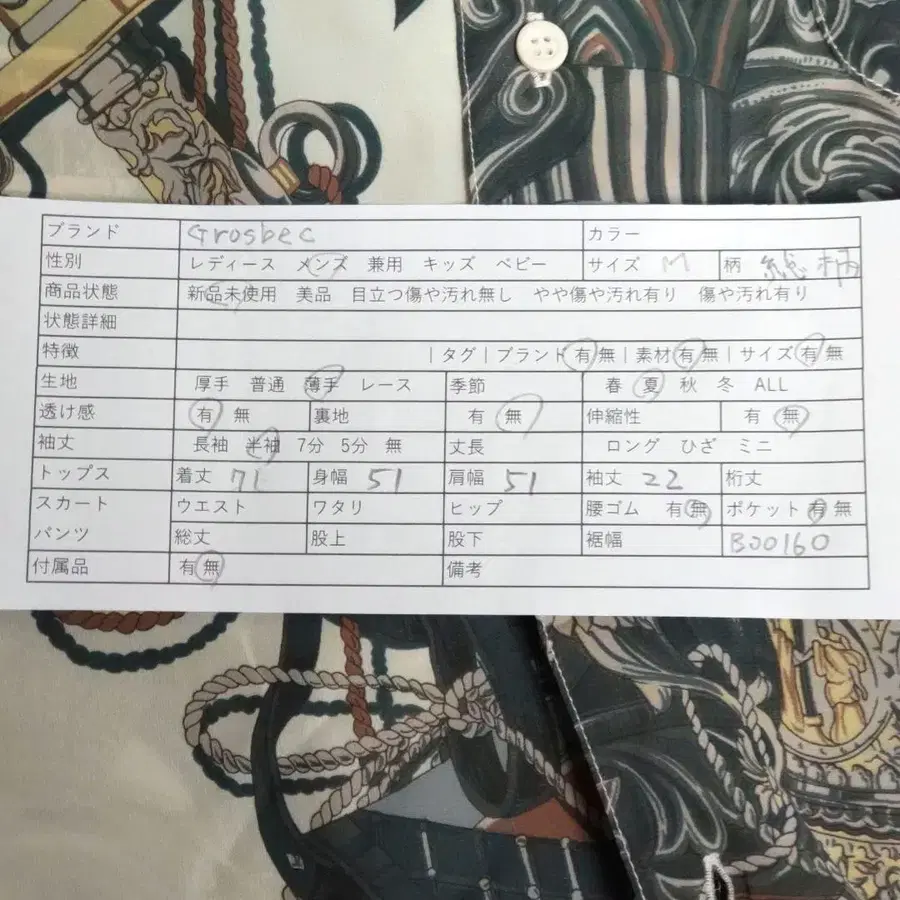 ブランド Grosbec カラー
性別 レディース メンズ 兼用 キッズ ベビー サイズ M 柄 総柄
商品状態 新品未使用 美品 目立つ傷や汚れ無し やや傷や汚れ有り 傷や汚れ有り
状態詳細
特徴 |タグ|ブランド 有 無|素材 有 無|サイズ 有 無
生地 厚手 普通 薄手 レース 季節 春 夏 秋 冬 ALL
透け感 有 無 裏地 有 無 伸縮性 有 無
袖丈 長袖 半袖 7分 5分 無 丈長 ロング ひざ ミニ
トップス 着丈 71 身幅 51 肩幅 51 袖丈 22 裄丈
スカート ウエスト ワタリ ヒップ 腰ゴム 有 無 ポケット 有 無
パンツ 総丈 股上 股下 裾幅 B00160
付属品 有 無 備考